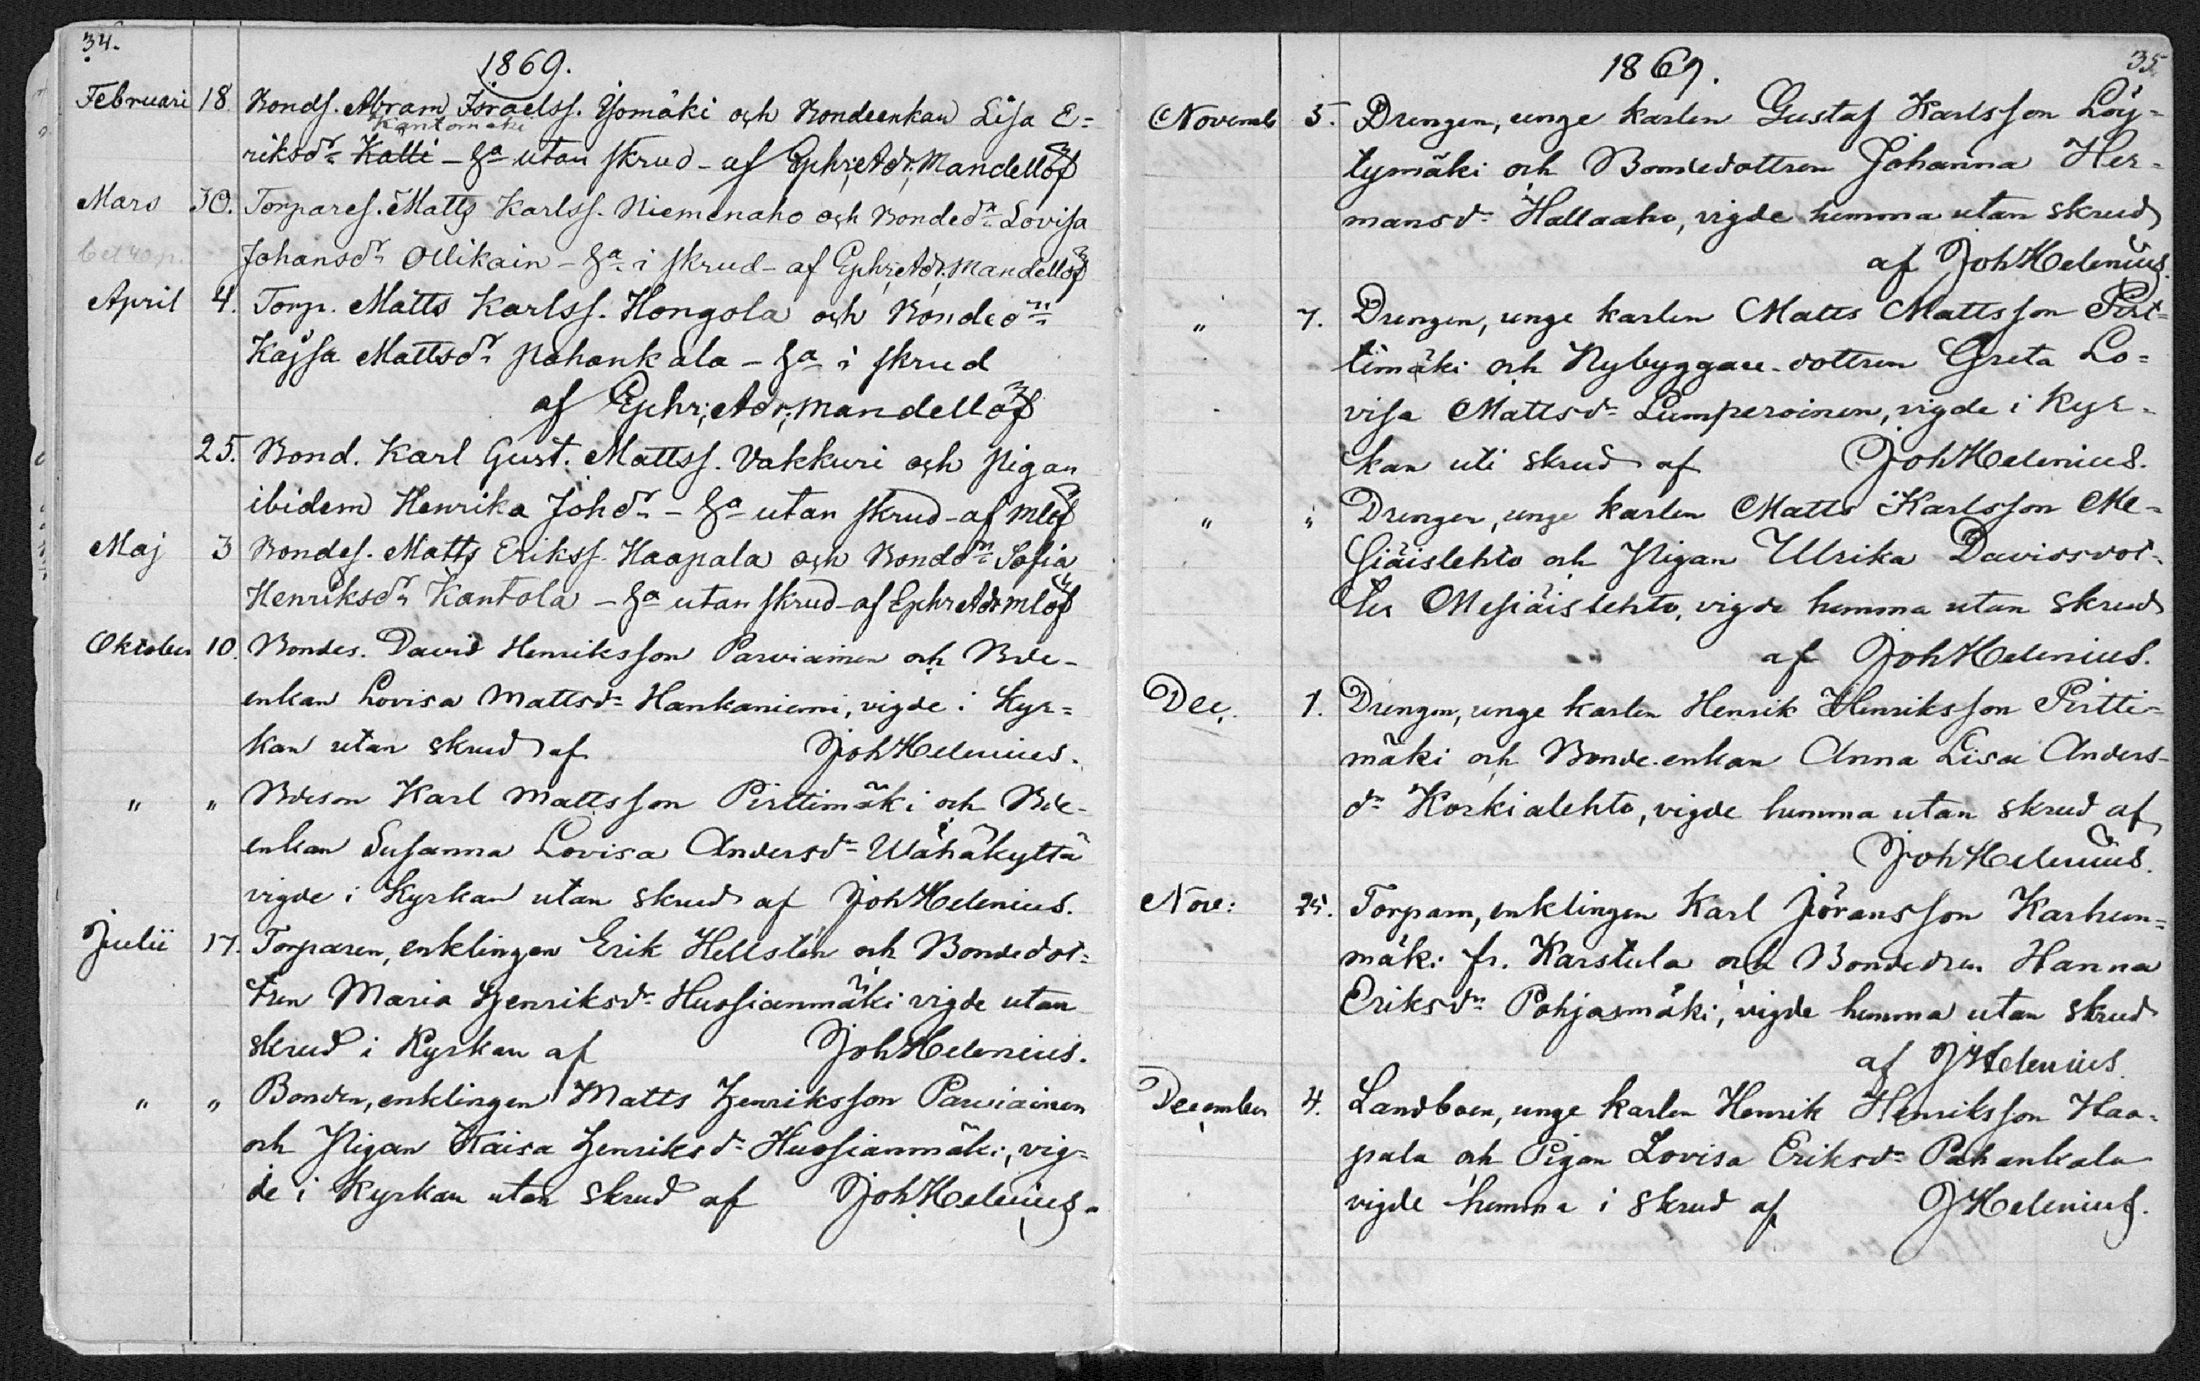 34.
1869.
Februari 18. Bonds. Abram Israelss. Isomäki och Bondeenkan Lisa E=
Kantomäki
riksdr Kalli - hä utan skrud - af Ephr; Adr; Mandellöf
Mars 30. Torpares. Matts Karlss. Niemenaho och Bondedr Lovisa
bet 40 p. Johansdr Ollikain - hä i skrud - af Ephr; Adr; Mandellöf
April 4. Torp. Matts Karlss. Hongola och Bondedr
Kajsa Mattsdr Pahankala - hä i skrud
af Ephr; Adr; Mandellöf
25. Bond. Karl Gust. Mattss. Vakkuri och Pigan
ibidem Henrika Johdr - hä utan skrud - af Mlöf
Maj 3 Bondes. Matts Erikss. Haapala och Bonddr Sofia
Henriksdr Kantola - hä utan skrud - af Ephr Adr Mlöf
Oktober 10. Bondes. David Henriksson Parviainen och Bde-
enkan Lovisa Mattsdr Hankaniemi, vigde i Kyr=
kan utan skrud af Joh Helenius.
" " Bdeson Karl Mattsson Pirttimäki och Bde-
enkan Susanna Lovisa Andersdr Wähäkyttä
vigde i Kyrkan utan skrud af Joh Helenius.
Julii 17. Torparen, enklingen Erik Hellstén och Bondedot=
tren Maria Henriksdr Huosianmäki vigde utan
skrud i Kyrkan af Joh Helenius.
" " Bonden, enklingen Matts Henriksson Parviainen
och Pigan Kaisa Henriksdr Huosianmäki, vig=
de i Kyrkan utan skrud af Joh Helenius.
35.
1869.
Novemb 5. Drengen, unge karlen Gustaf Karlsson Löy=
tymäki och Bondedottren Johanna Her=
mansdr Hallaaho, vigde hemma utan skrud
af Joh Helenius.
" 7. Drengen, unge karlen Matts Mattsson Pirt=
timäki och Nybyggare-dottren Greta Lo=
visa Mattsdr Lumperoinen, vigde i Kyr-
kan uti skrud af Joh Helenius.
" " Drengen, unge karlen Matts Karlsson Me=
siäislehto och Pigan Ulrika Davidsdot-
ter Mesiäislehto, vigde hemma utan skrud
af Joh Helenius.
Dec. 1. Drengen, unge karlen Henrik Henriksson Pirtti-
mäki och Bonde-enkan Anna Lisa Anders-
dr Korkialehto, vigde hemma utan skrud af
Joh Helenius.
Nov: 25. Torparn, enklingen Karl Jöransson Karhun=
mäki fr. Karstula och Bondedren Hanna
Eriksdr Pohjasmäki, vigde hemma utan skrud
af J Helenius.
December 4. Landboen, unge karlen Henrik Henriksson Haa-
pala och Pigan Lovisa Eriksdr Pahankala
vigde hemma i skrud af J Helenius.